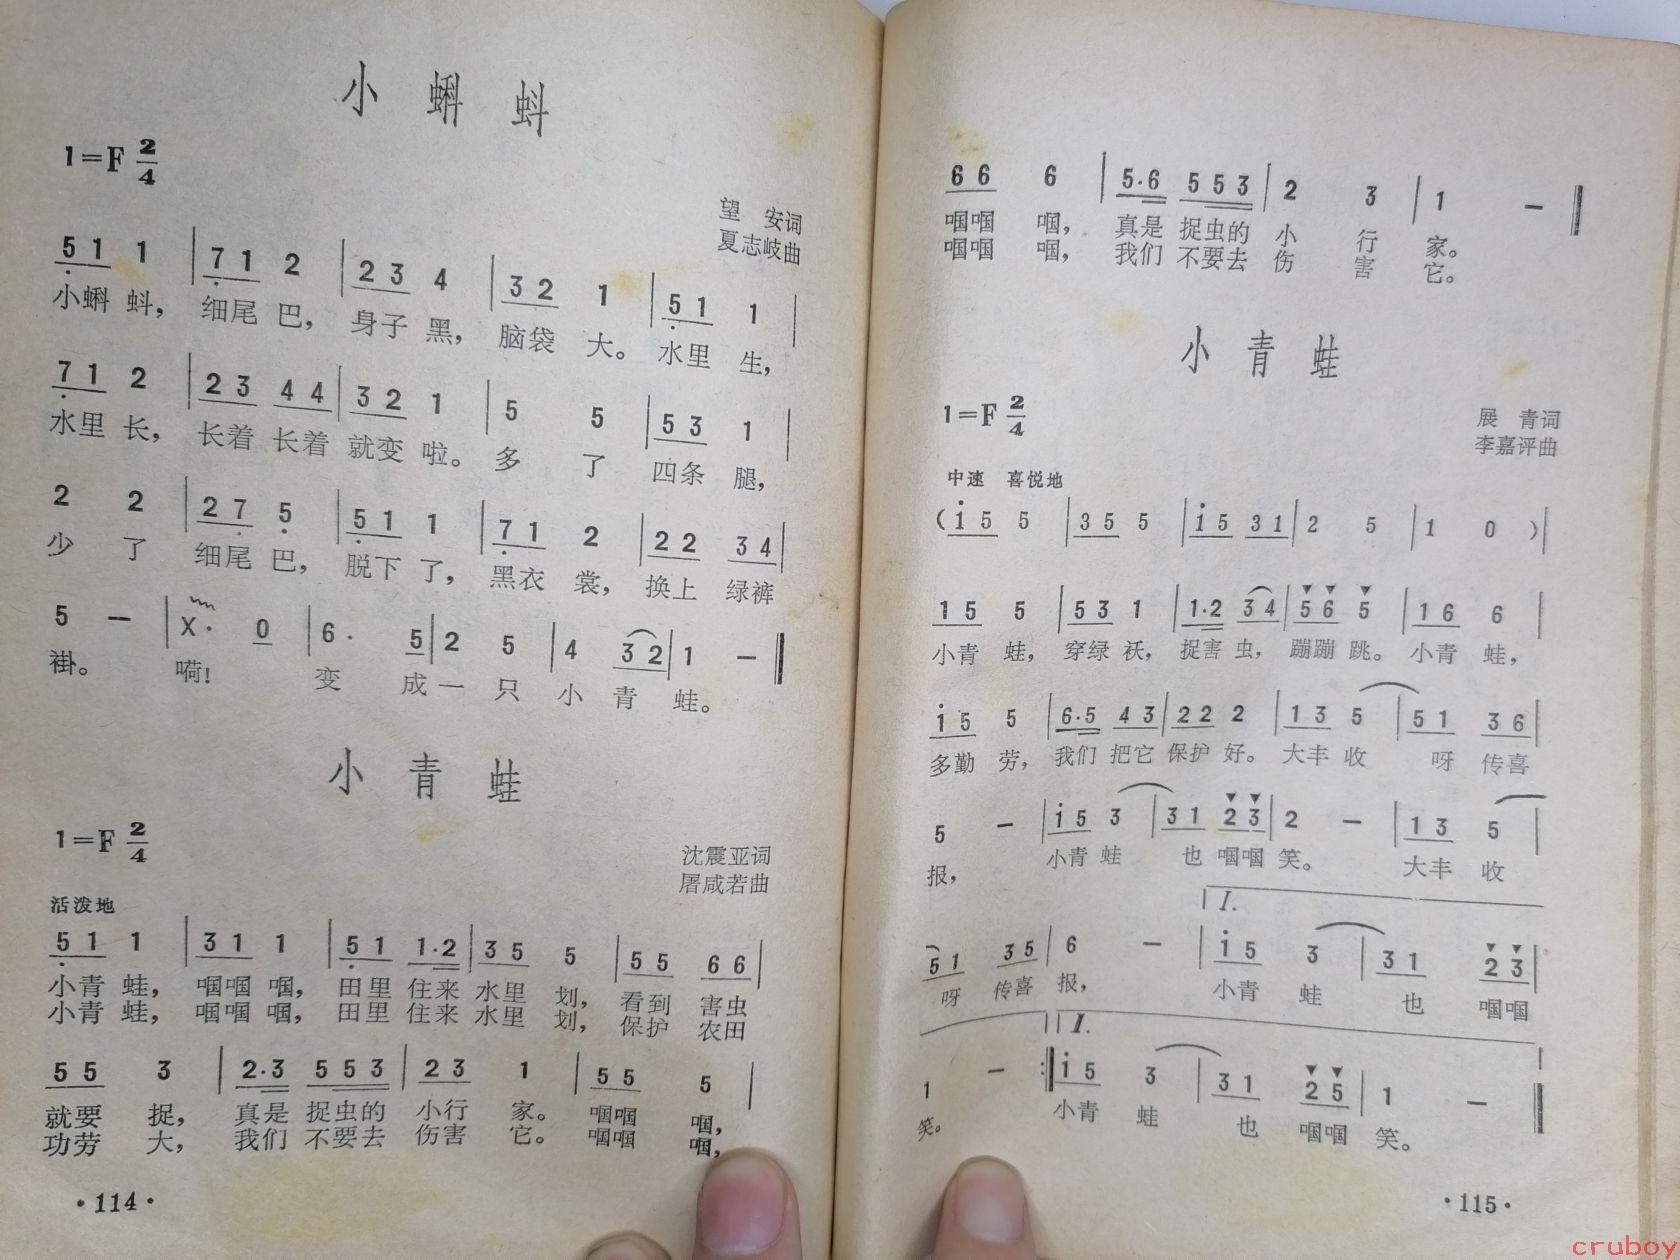 小蝌蚪
1=F 2/4
望 安词
夏志岐曲
5 1 1 | 7 1 2 | 2 3 4 | 3 2 1 | 5 1 1 |
小蝌 蚪， 细尾 巴， 身子 黑， 脑袋 大。 水里 生，
7 1 2 | 2 3 4 4 | 3 2 1 | 5 5 | 5 3 1 |
水里 长， 长着 长着 就变 啦。 多 了 四条 腿，
2 2 | 2 7 5 | 5 1 1 | 7 1 2 | 2 2 3 4 |
少 了 细尾 巴， 脱下 了， 黑衣 裳， 换上 绿裤
5 — | X· 0 | 6· 5 | 2 5 | 4 3 2 | 1 — ‖
褂。 嗬! 变 成 一 只 小 青 蛙。
小青蛙
1=F 2/4
沈震亚词
屠咸若曲
活泼地
5 1 1 | 3 1 1 | 5 1 1·2 | 3 5 5 | 5 5 6 6 |
小青 蛙， 啯啯 啯， 田里 住来 水里 划， 看到 害虫
小青 蛙， 啯啯 啯， 田里 住来 水里 划， 保护 农田
5 5 3 | 2·3 5 5 3 | 2 3 1 | 5 5 5 |
就要 捉， 真是 捉虫的 小行 家。 啯啯 啯，
功劳 大， 我们 不要去 伤害 它。 啯啯 啯，
·114·
6 6 6 | 5·6 5 5 3 | 2 3 | 1 — ‖
啯啯 啯， 真是 捉虫的 小 行 家。
啯啯 啯， 我们 不要去 伤 害 它。
小青蛙
1=F 2/4
展 青词
李嘉评曲
中速 喜悦地
(i 5 5 | 3 5 5 | i 5 3 1 | 2 5 | 1 0 )|
1 5 5 | 5 3 1 | 1·2 3 4 | 5 6 5 | 1 6 6 |
小青 蛙， 穿绿 袄， 捉害 虫， 蹦蹦 跳。 小青 蛙，
i 5 5 | 6·5 4 3 | 2 2 2 | 1 3 5 | 5 1 3 6 |
多勤 劳， 我们 把它 保护 好。 大丰 收 呀 传喜
5 — | i 5 3 | 3 1 2 3 | 2 — | 1 3 5 |
报， 小青 蛙 也 啯啯 笑。 大丰 收
I.
5 1 3 5 | 6 — | i 5 3 | 3 1 2 3 |
呀 传喜 报， 小青 蛙 也 啯啯
I.
1 — :‖ i 5 3 | 3 1 2 5 | 1 — ‖
笑。 小青 蛙 也 啯啯 笑。
·115·
cruboy